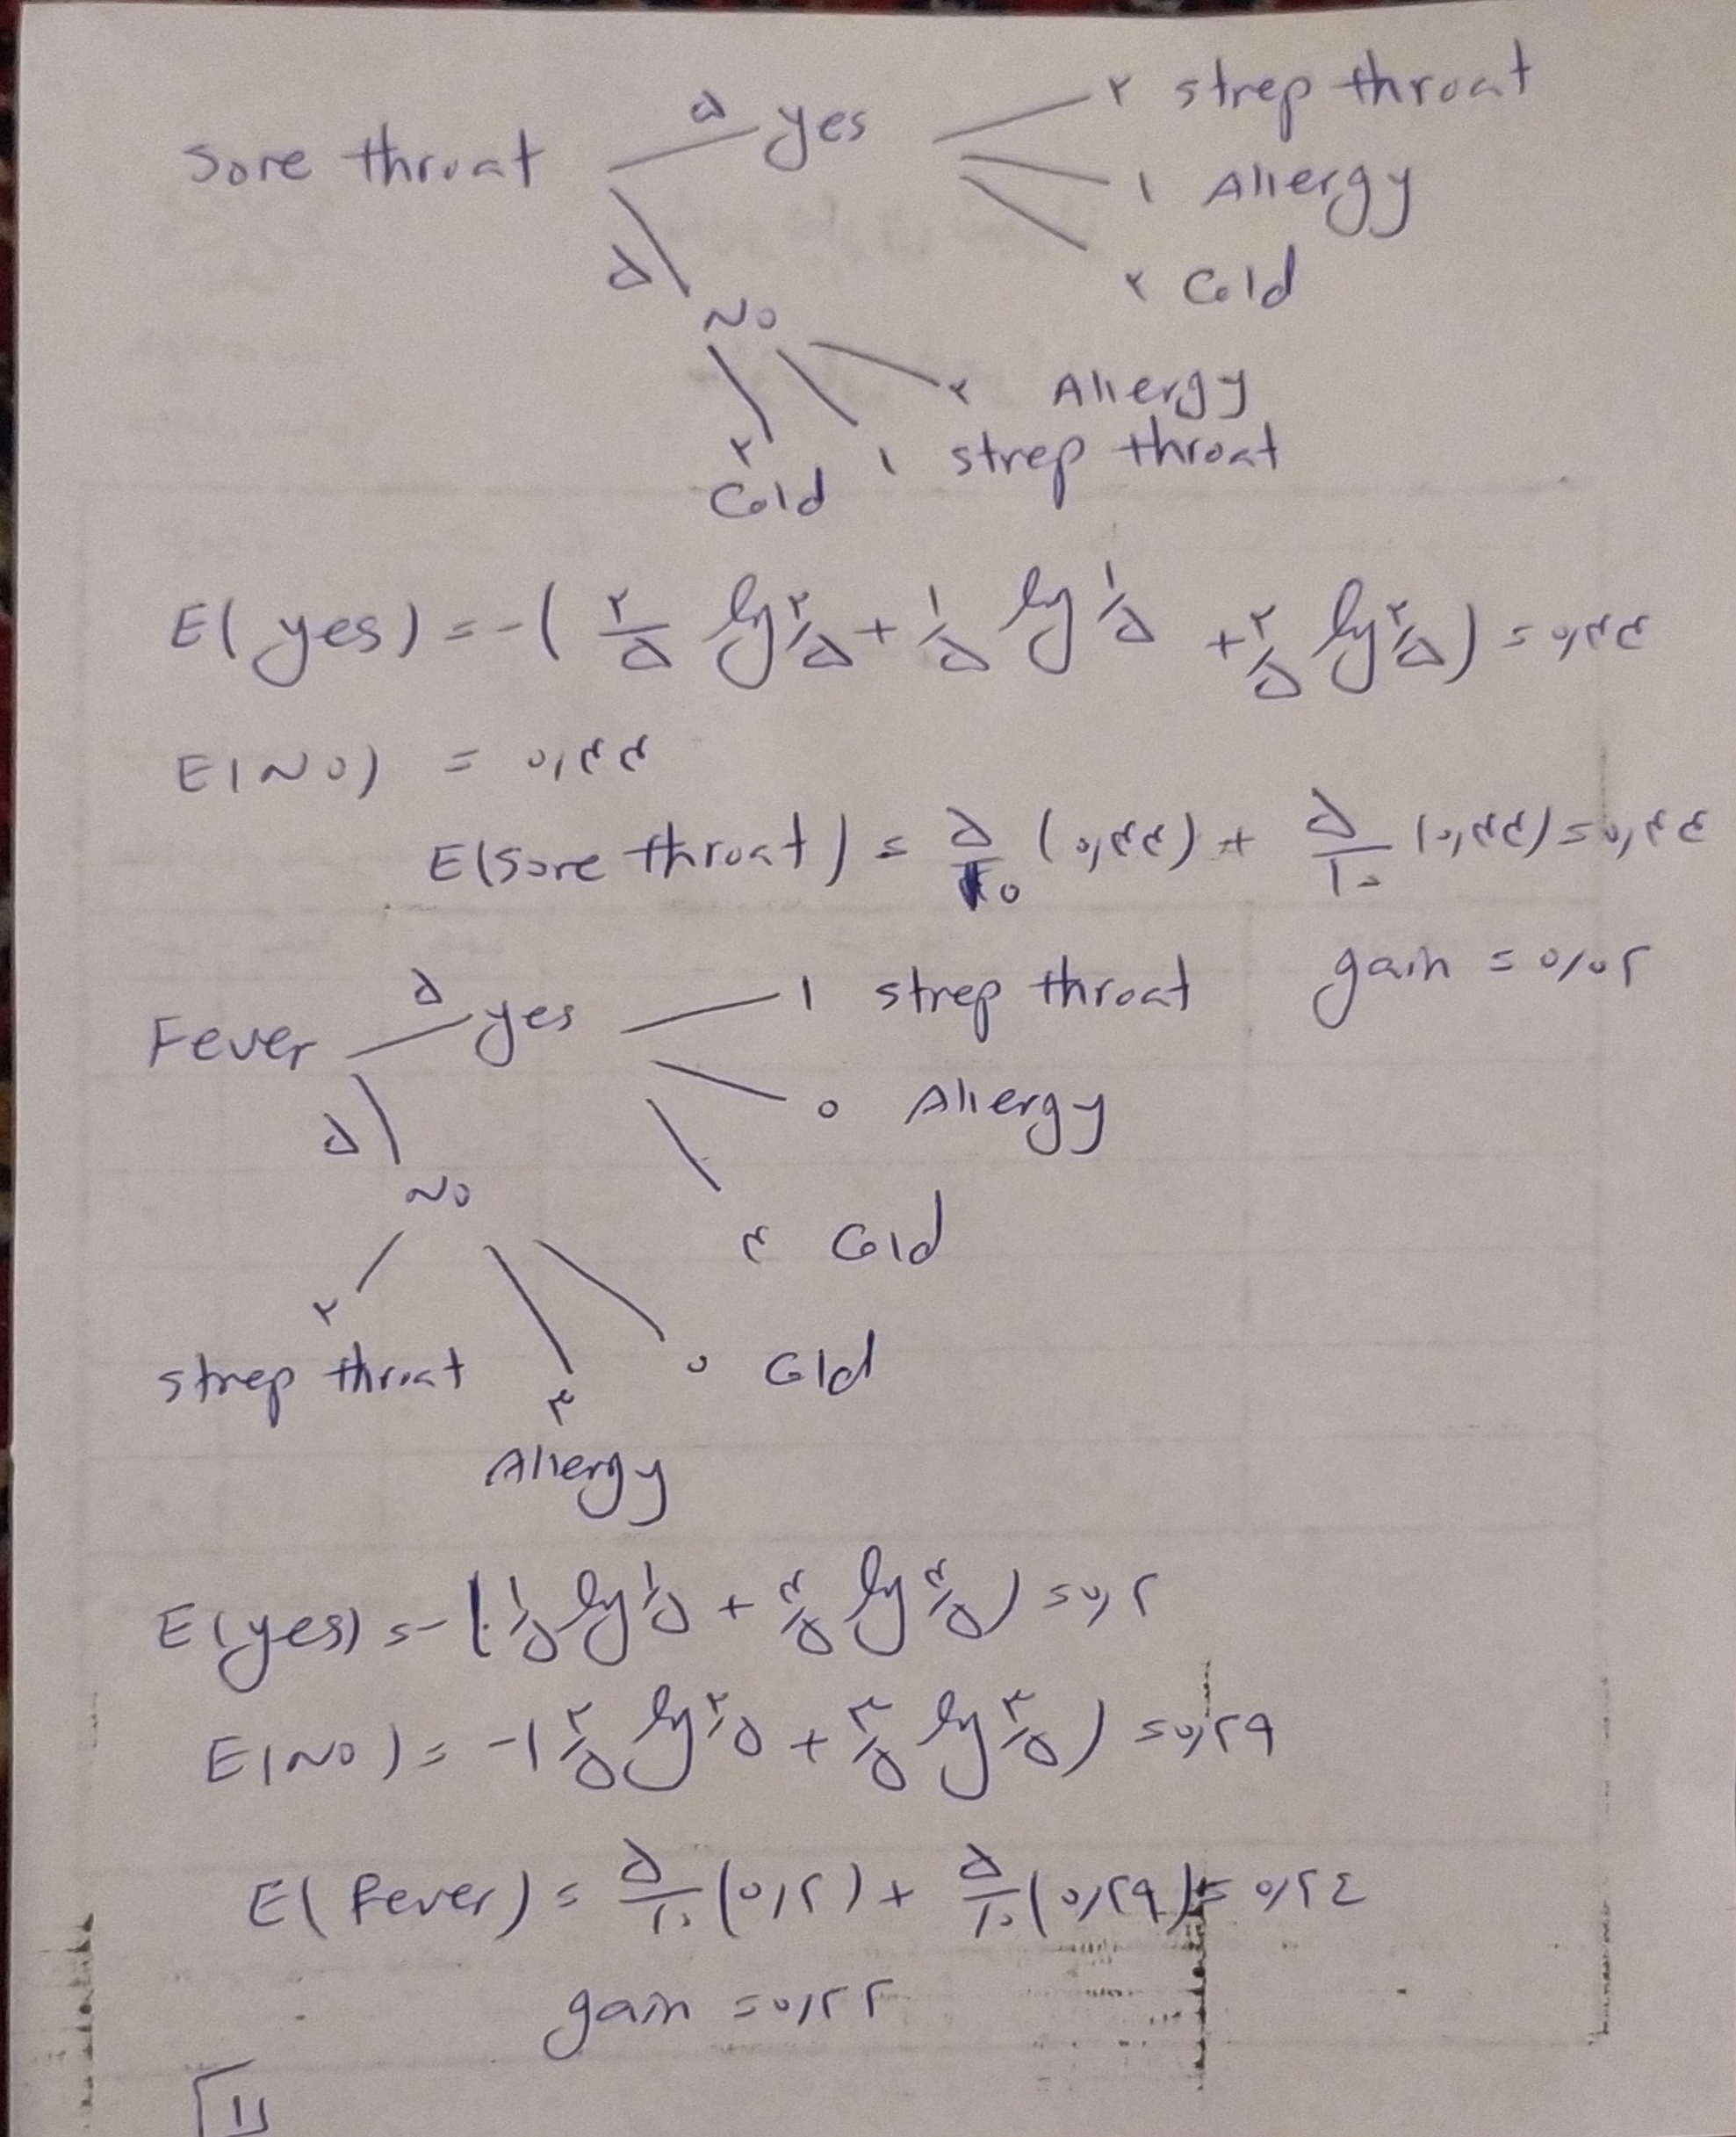 Sore throat ۵ yes ۲ strep throat
۱ Allergy
۵ ۲ Cold
No
۲ Allergy
۲ Cold ۱ strep throat
E(yes) = -(۲/۵ lg ۲/۵ + ۱/۵ lg ۱/۵ + ۲/۵ lg ۲/۵) = ۰,۴۴
E(No) = ۰,۴۴
E(Sore throat) = ۵/۱۰ (۰,۴۴) + ۵/۱۰ (۰,۴۴) = ۰,۴۴
gain = ۰,۰۲
Fever ۵ yes ۱ strep throat
۵ ۰ Allergy
No
۴ Cold
۲ strep throat ۰ Cold
۳ Allergy
E(yes) = -(۱/۵ lg ۱/۵ + ۴/۵ lg ۴/۵) = ۰,۲
E(No) = -(۲/۵ lg ۲/۵ + ۳/۵ lg ۳/۵) = ۰,۲۹
E(Fever) = ۵/۱۰ (۰,۲) + ۵/۱۰ (۰,۲۹) = ۰,۲٤
gain = ۰,۲۲